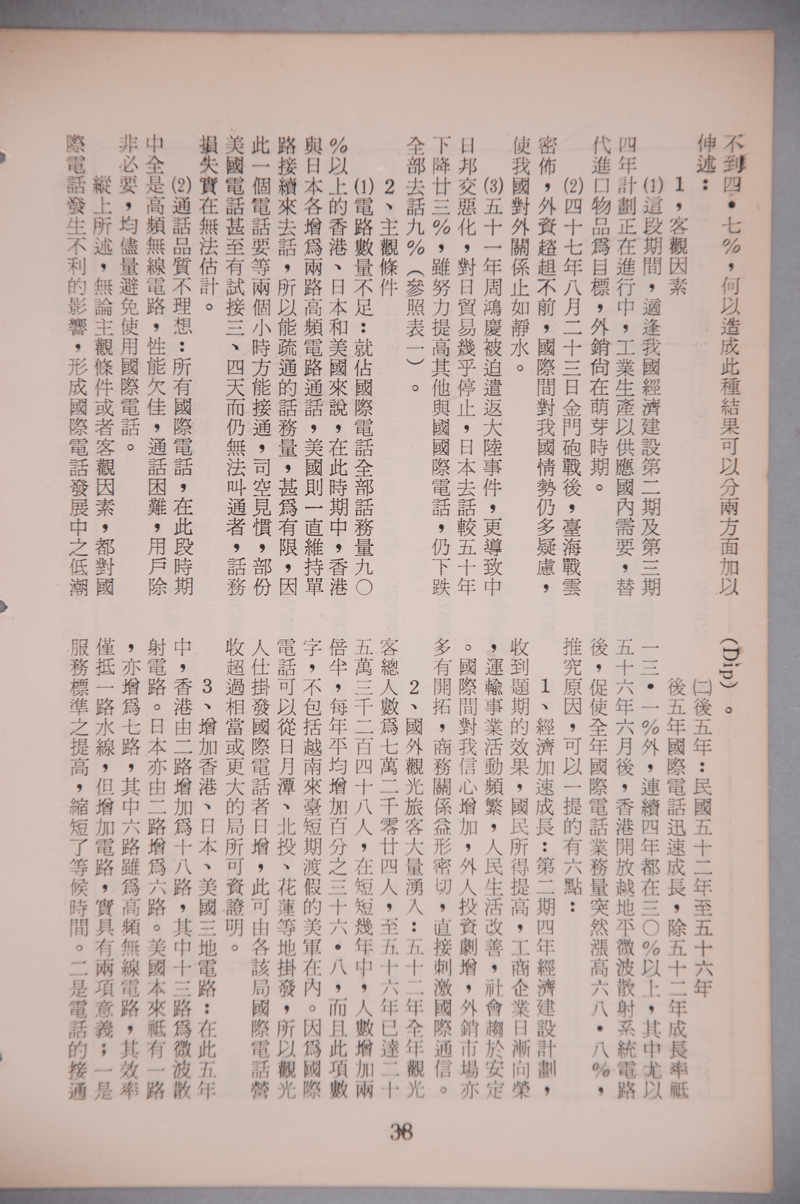 不到四•七%，何以造成此種結果可以分兩方面加以
伸述：
1，客觀因素
⑴這段期間，適逢我國經濟建設第二期及第三期
四年計劃正在進行中，工業生產以供應國內需要，替
代進口物品爲目標，外銷尙在萌芽時期。
⑵四十七年八月二十三日金門砲戰後，臺海戰雲
密佈，外資趑趄不前，國際間對我國情勢仍多疑慮，
使我國對外關係止如靜水。
⑶五十一年周鴻慶被迫遣返大陸事件，更導致中
日邦交惡化，對日貿易幾乎停止，日本去話較五十年
下降廿三%，雖努力提高其他與國國際電話，仍下跌
全部去話九%（參照表一）。
2、主觀條件
⑴電路數量不足：就佔國際電話全部話務量九〇
%以上的香港、日本和美國來說，在此時期中，香港
與日本各增爲兩路高頻電路通話，美國則一直維持單
路接續來去話，所以能疏通的話務量，甚爲有限，因
此一個電話要等兩個小時方能接通，司空見慣，部份
美國電話甚至有試接三、四天而仍無法叫通者，話務
損失實在無法估計。
⑵通話品質不理想：所有國際電話，在此段時期
中全是高頻無線電路，性能欠佳，通話困難，用戶除
非必要，均儘量避免使用國際電話。
縱上所述，無論主觀條件或者客觀因素，都對國
際電話發生不利的影響，形成國際電話發展中之低潮
（Dip）。
㈡後五年：民國五十二年至五十六年
後五年國際電話迅速成長，除五十二年成長率祗
一三•一%外，連續四年都在三〇%以上，其中尤以
五十六年六月後，香港開放越地平微波散射系統電路
後，促使全年國際電話業務量突然漲高六八•八%，
推究原因，可以一提的有六點：
1、經濟加速成長：第二期四年經濟建設計劃，
收到題期的效果，國民所得提高，工商企業日漸向榮
，運輸事業活動頻繁，人民生活改善，社會趨於安定
。國際間對我信心增加，外人投資劇增，外銷市場亦
多有開拓，商務關係益形密切，直接刺激國際通信。
2、國外觀光旅客大量湧入：五十二年全年觀光
客總人數爲七萬二千零廿四人，至五十六年已達二十
五萬三千二百四十八人，在短短幾年中，人數增加兩
倍半，每年平均增加百分之三十六•八，而且此項數
字，不包括越南來臺短期渡假的美軍在內。因爲國際
電話可以從日月潭、北投、花蓮等地掛發，所以觀光
人仕掛發國際電話者日增，此可由各該局國際電話營
收超過相當或更大的局所可資證明。
3、增加香港、日本、美國三地電路：在此五年
中，香港由二路增加爲十八路，其中十三路爲微波散
射電路。日本亦由二路增爲六路。美國本來祗有一路
，亦增爲七路，其中六路雖爲高頻無線電路，其效率
僅抵一路水線，但增加電路，實具有兩項意義；一是
服務標準之提高，縮短了等候時間。二是電話的接通
38